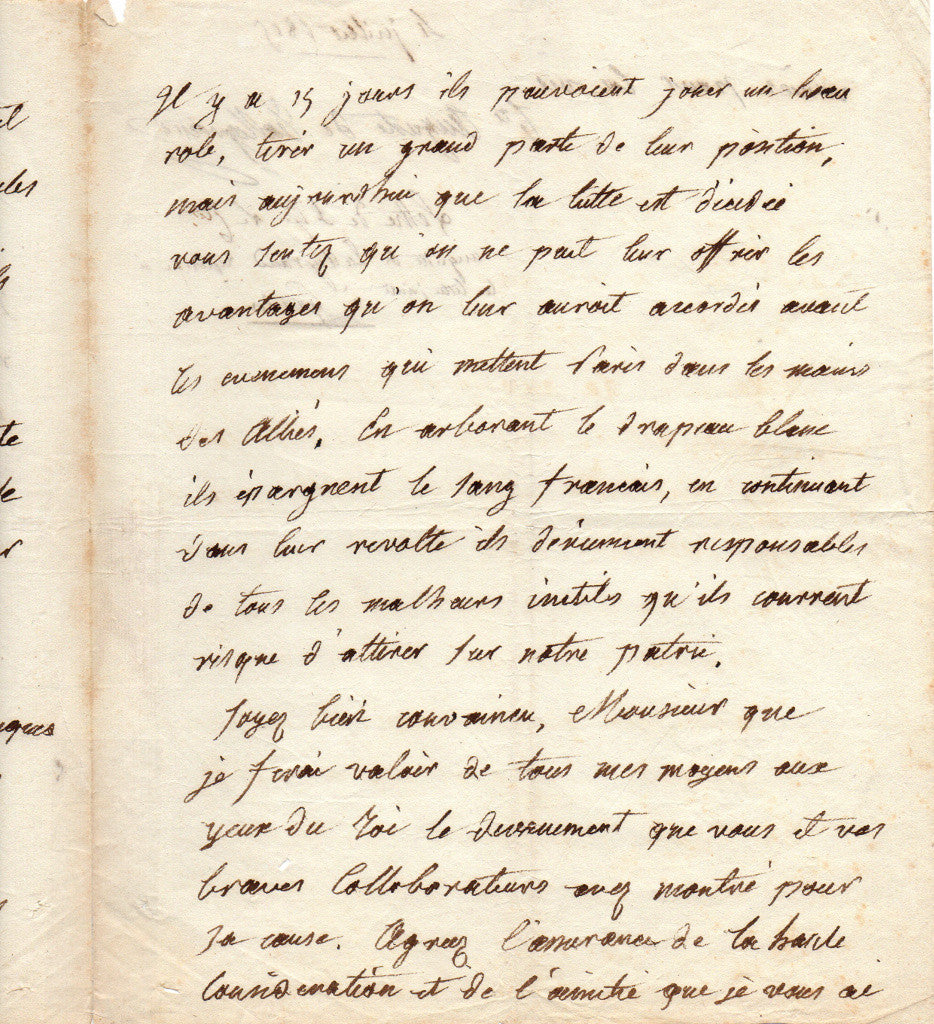 Il y a 15 jours ils pouvoient jouer un beau
role, tirer un grand parti de leur position,
mais aujourdhui que la lutte est décidée
vous sentez qu'on ne peut leur offrir les
avantages qu'on leur auroit accordés avant
les evenemens qui mettent Paris dans les mains
des Alliés. En arborant le drapeau blanc
ils épargnent le sang francais, en continuant
dans leur revolte ils deviennent responsables
de tous les malheurs inutils qu'ils courrent
risque d'attirer sur notre patrie.
Soyez bien convaincu, Monsieur que
je ferai valoir de tous mes moyens aux
yeux du Roi le devouement que vous et vos
braves Colloborateurs avez montré pour
sa cause. Agreez l'assurance de la haute
Consideration et de l'amitié que je vous ai